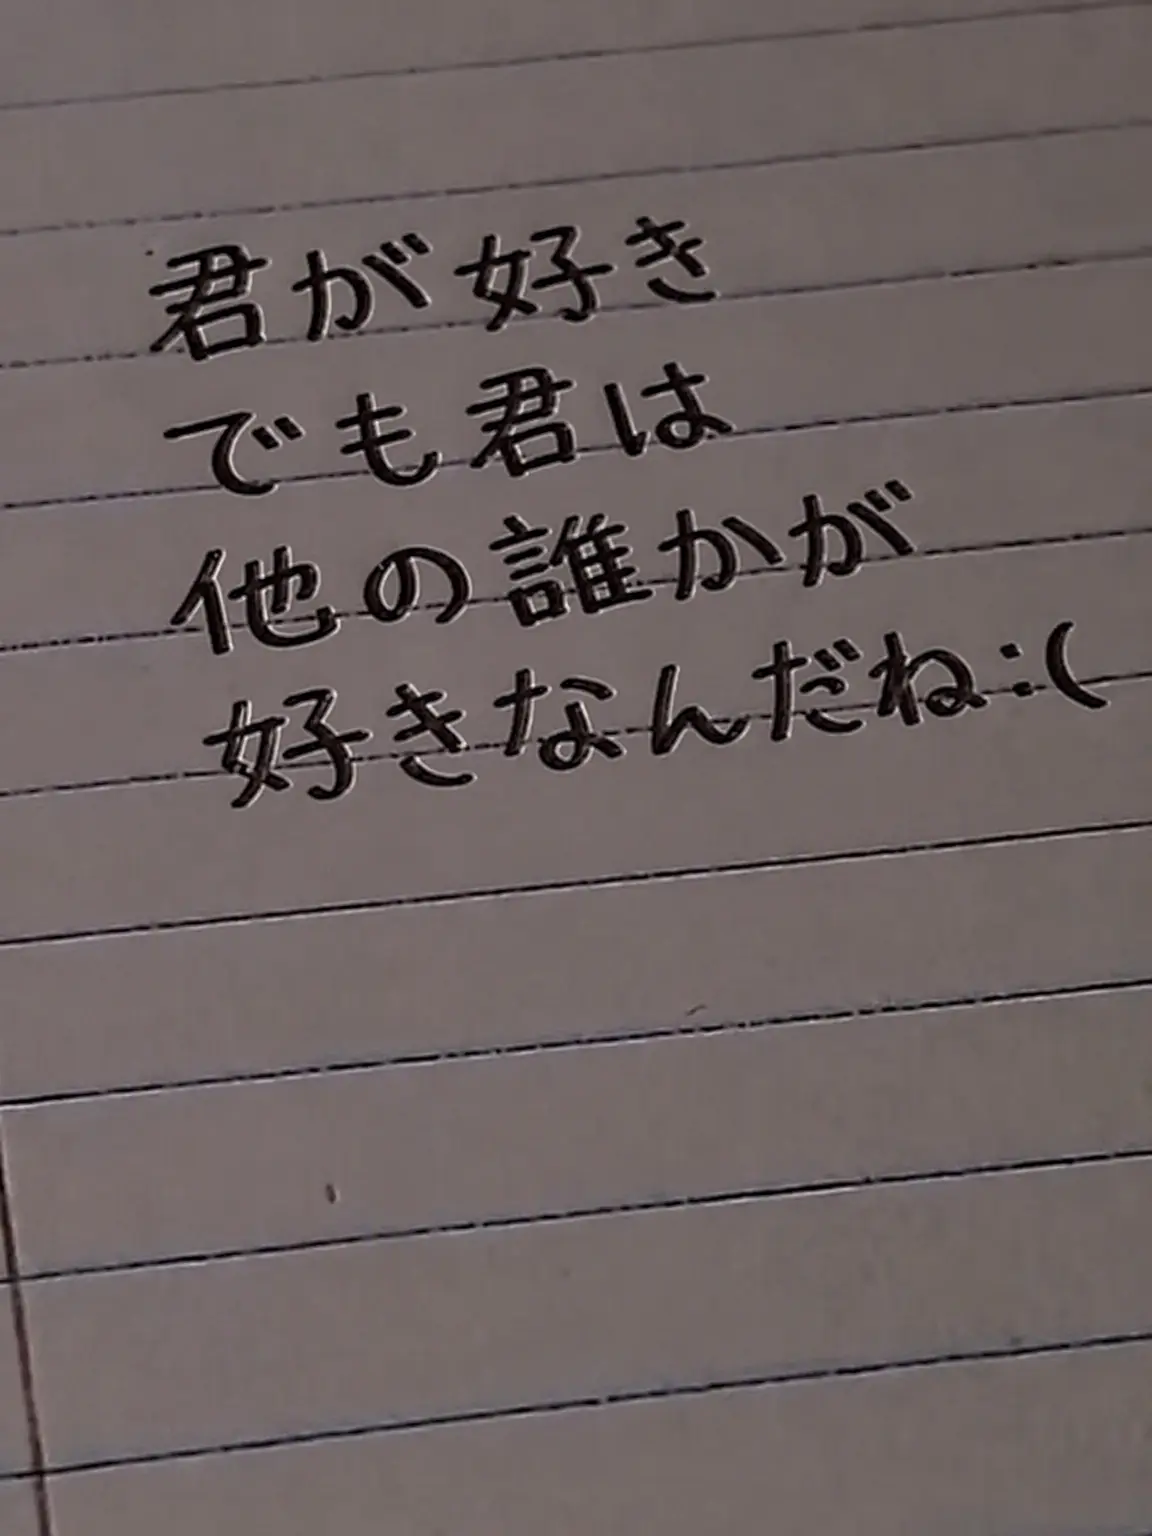 君が好き
でも君は
他の誰かが
好きなんだね:(